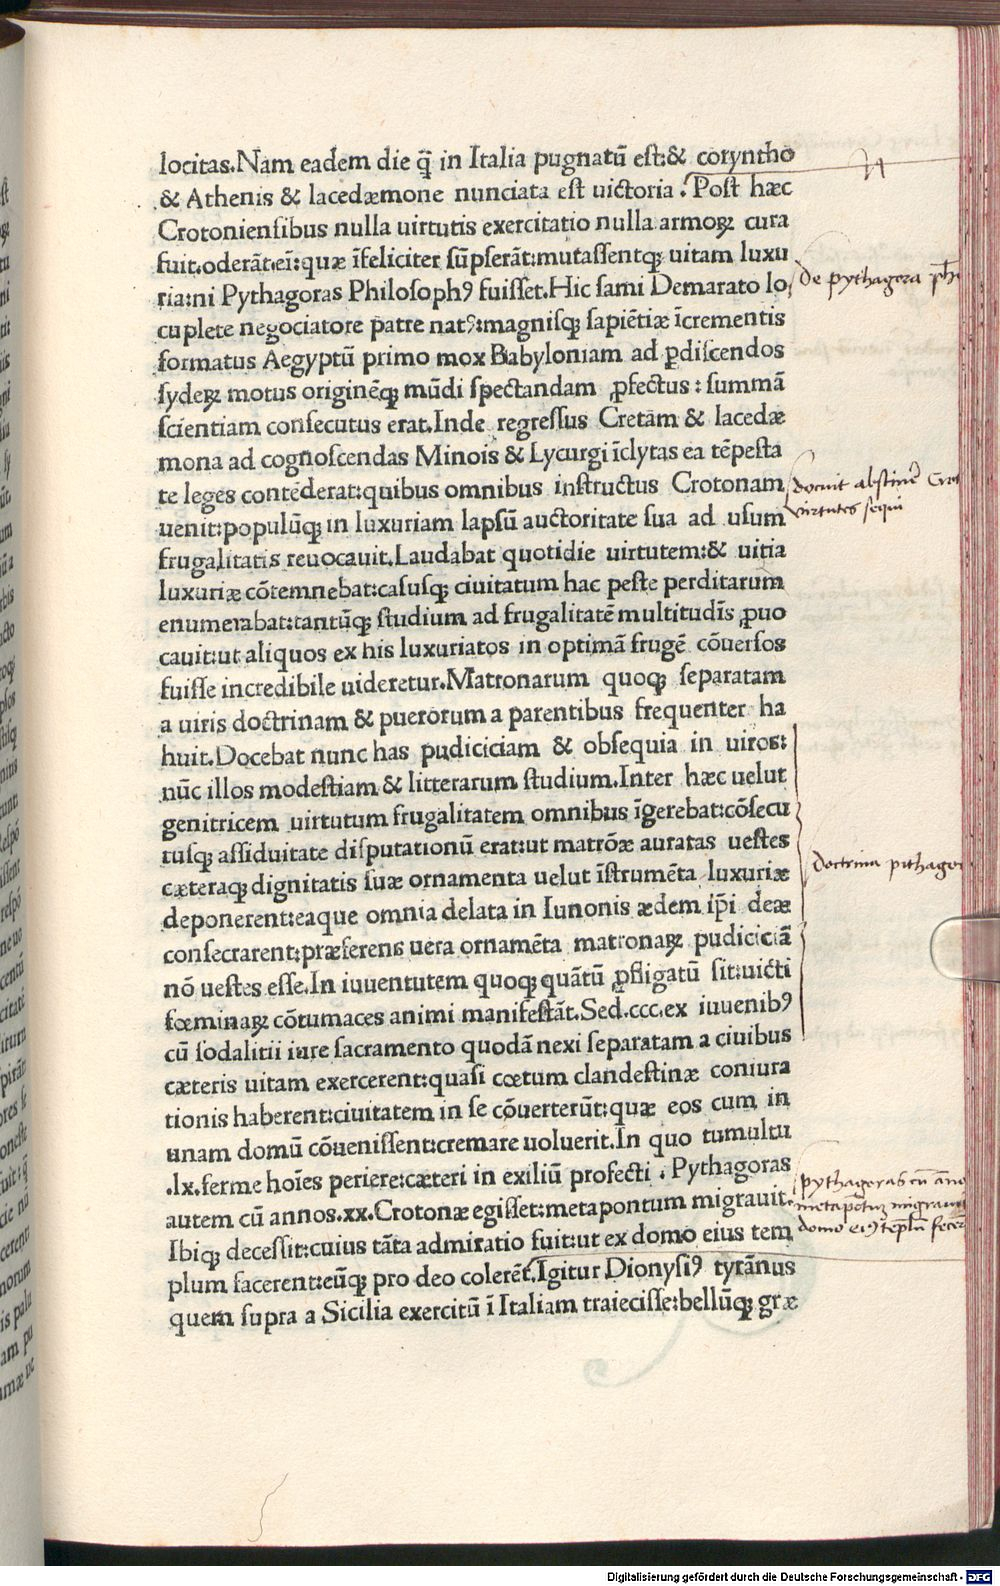 locitas.Nam eadem die q̃ in Italia pugnatũ est:& coryntho
& Athenis & lacedæmone nunciata est uictoria . Post hæc
Crotoniensibus nulla uirtutis exercitatio nulla armoꝝ cura
fuit.oderãt.eĩ:quæ ĩfeliciter sũpserãt:mutassentqꝫ uitam luxu
ria:ni Pythagoras Philosophꝰ fuisset.Hic sami Demarato lo
cuplete negociatore patre natꝰ:magnisqꝫ sapiẽtiæ ĩcrementis
formatus Aegyptũ primo mox Babyloniam ad ꝑdiscendos
sydeꝝ motus originẽqꝫ mũdi spectandam ꝓfectus : summã
scientiam consecutus erat.Inde regressus Cretam & lacedæ
mona ad cognoscendas Minois & Lycurgi ĩclytas ea tẽpesta
te leges contẽderat:quibus omnibus instructus Crotonam
uenit:populũqꝫ in luxuriam lapsũ auctoritate sua ad usum
frugalitatis reuocauit.Laudabat quotidie uirtutem:& uitia
luxuriæ cõtemnebat:casusqꝫ ciuitatum hac peste perditarum
enumerabat:tantũqꝫ studium ad frugalitatẽ multitudĩs ꝓuo
cauit:ut aliquos ex his luxuriatos in optimã frugẽ cõuersos
fuisse incredibile uideretur.Matronarum quoqꝫ separatam
a uiris doctrinam & puerorum a parentibus frequenter ha
buit.Docebat nunc has pudiciciam & obsequia in uiros:
nũc illos modestiam & litterarum studium.Inter hæc uelut
genitricem uirtutum frugalitatem omnibus ĩgerebat:cõsecu
tusqꝫ assiduitate disputationũ erat:ut matrõæ auratas uestes
cæteraqꝫ dignitatis suæ ornamenta uelut ĩstrumẽta luxuriæ
deponerent:eaque omnia delata in Iunonis ædem ip̃i deæ
consecrarent:præferens uera ornamẽta matronaꝝ pudiciciã
nõ uestes esse.In iuuentutem quoqꝫ quãtũ ꝓfligatũ sit:uicti
fœminaꝝ cõtumaces animi manifestãt.Sed.ccc.ex iuuenibꝰ
cũ sodalitii iure sacramento quodã nexi separatam a ciuibus
cæteris uitam exercerent:quasi cœtum clandestinæ coniura
tionis haberent:ciuitatem in se cõuerterũt:quæ eos cum in
unam domũ cõuenissent:cremare uoluerit.In quo tumultu
.lx.ferme hoĩes periere:cæteri in exiliũ profecti . Pythagoras
autem cũ annos.xx.Crotonæ egisset:metapontum migrauit.
Ibiqꝫ decessit:cuius tãta admiratio fuit:ut ex domo eius tem
plum facerent:eũqꝫ pro deo colerẽt.Igitur Dionysiꝰ tyrãnus
quem supra a Sicilia exercitũ ĩ Italiam traiecisse:bellũqꝫ græ
de pythagora
docuit abstinere
virtutes sequi
doctrina
pythagoras cũ
domo eiꝰ
Digitalisierung gefördert durch die Deutsche Forschungsgemeinschaft - DFG